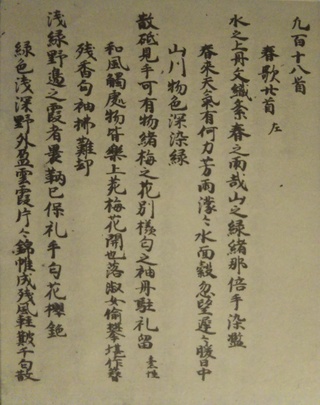 九百十八首
春歌廿首 左
水之上丹文織紊春之雨哉山之緑緒那倍手染濫
春来天気有何力苦雨濛々水面縠忽望遅々暖日中
山川物色深染緑
散砥見手可有物緒梅之花別様匂之袖丹駐礼留 素性
和風触処物皆楽上苑梅花開也落淑女偸攀堪作簪
残香匂袖払難却
浅緑野辺之霞者裹鞆己保礼手匂花桜鉋
緑色浅深野外盈雲霞片々錦帷成残風軽皺千匂散